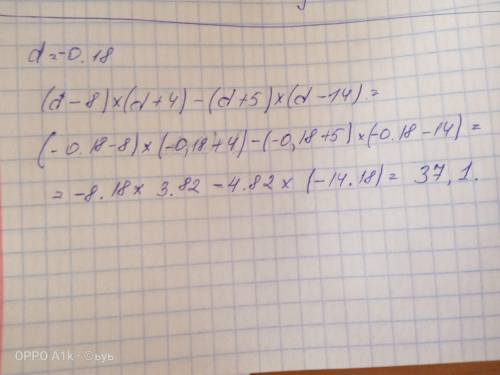 d=-0.18
(d-8)×(d+4)-(d+5)×(d-14)=
(-0.18-8)×(-0,18+4)-(-0,18+5)×(-0.18-14)=
=-8.18× 3.82 -4.82× (-14.18)= 37,1.
OPPO A1k · ©ьуь